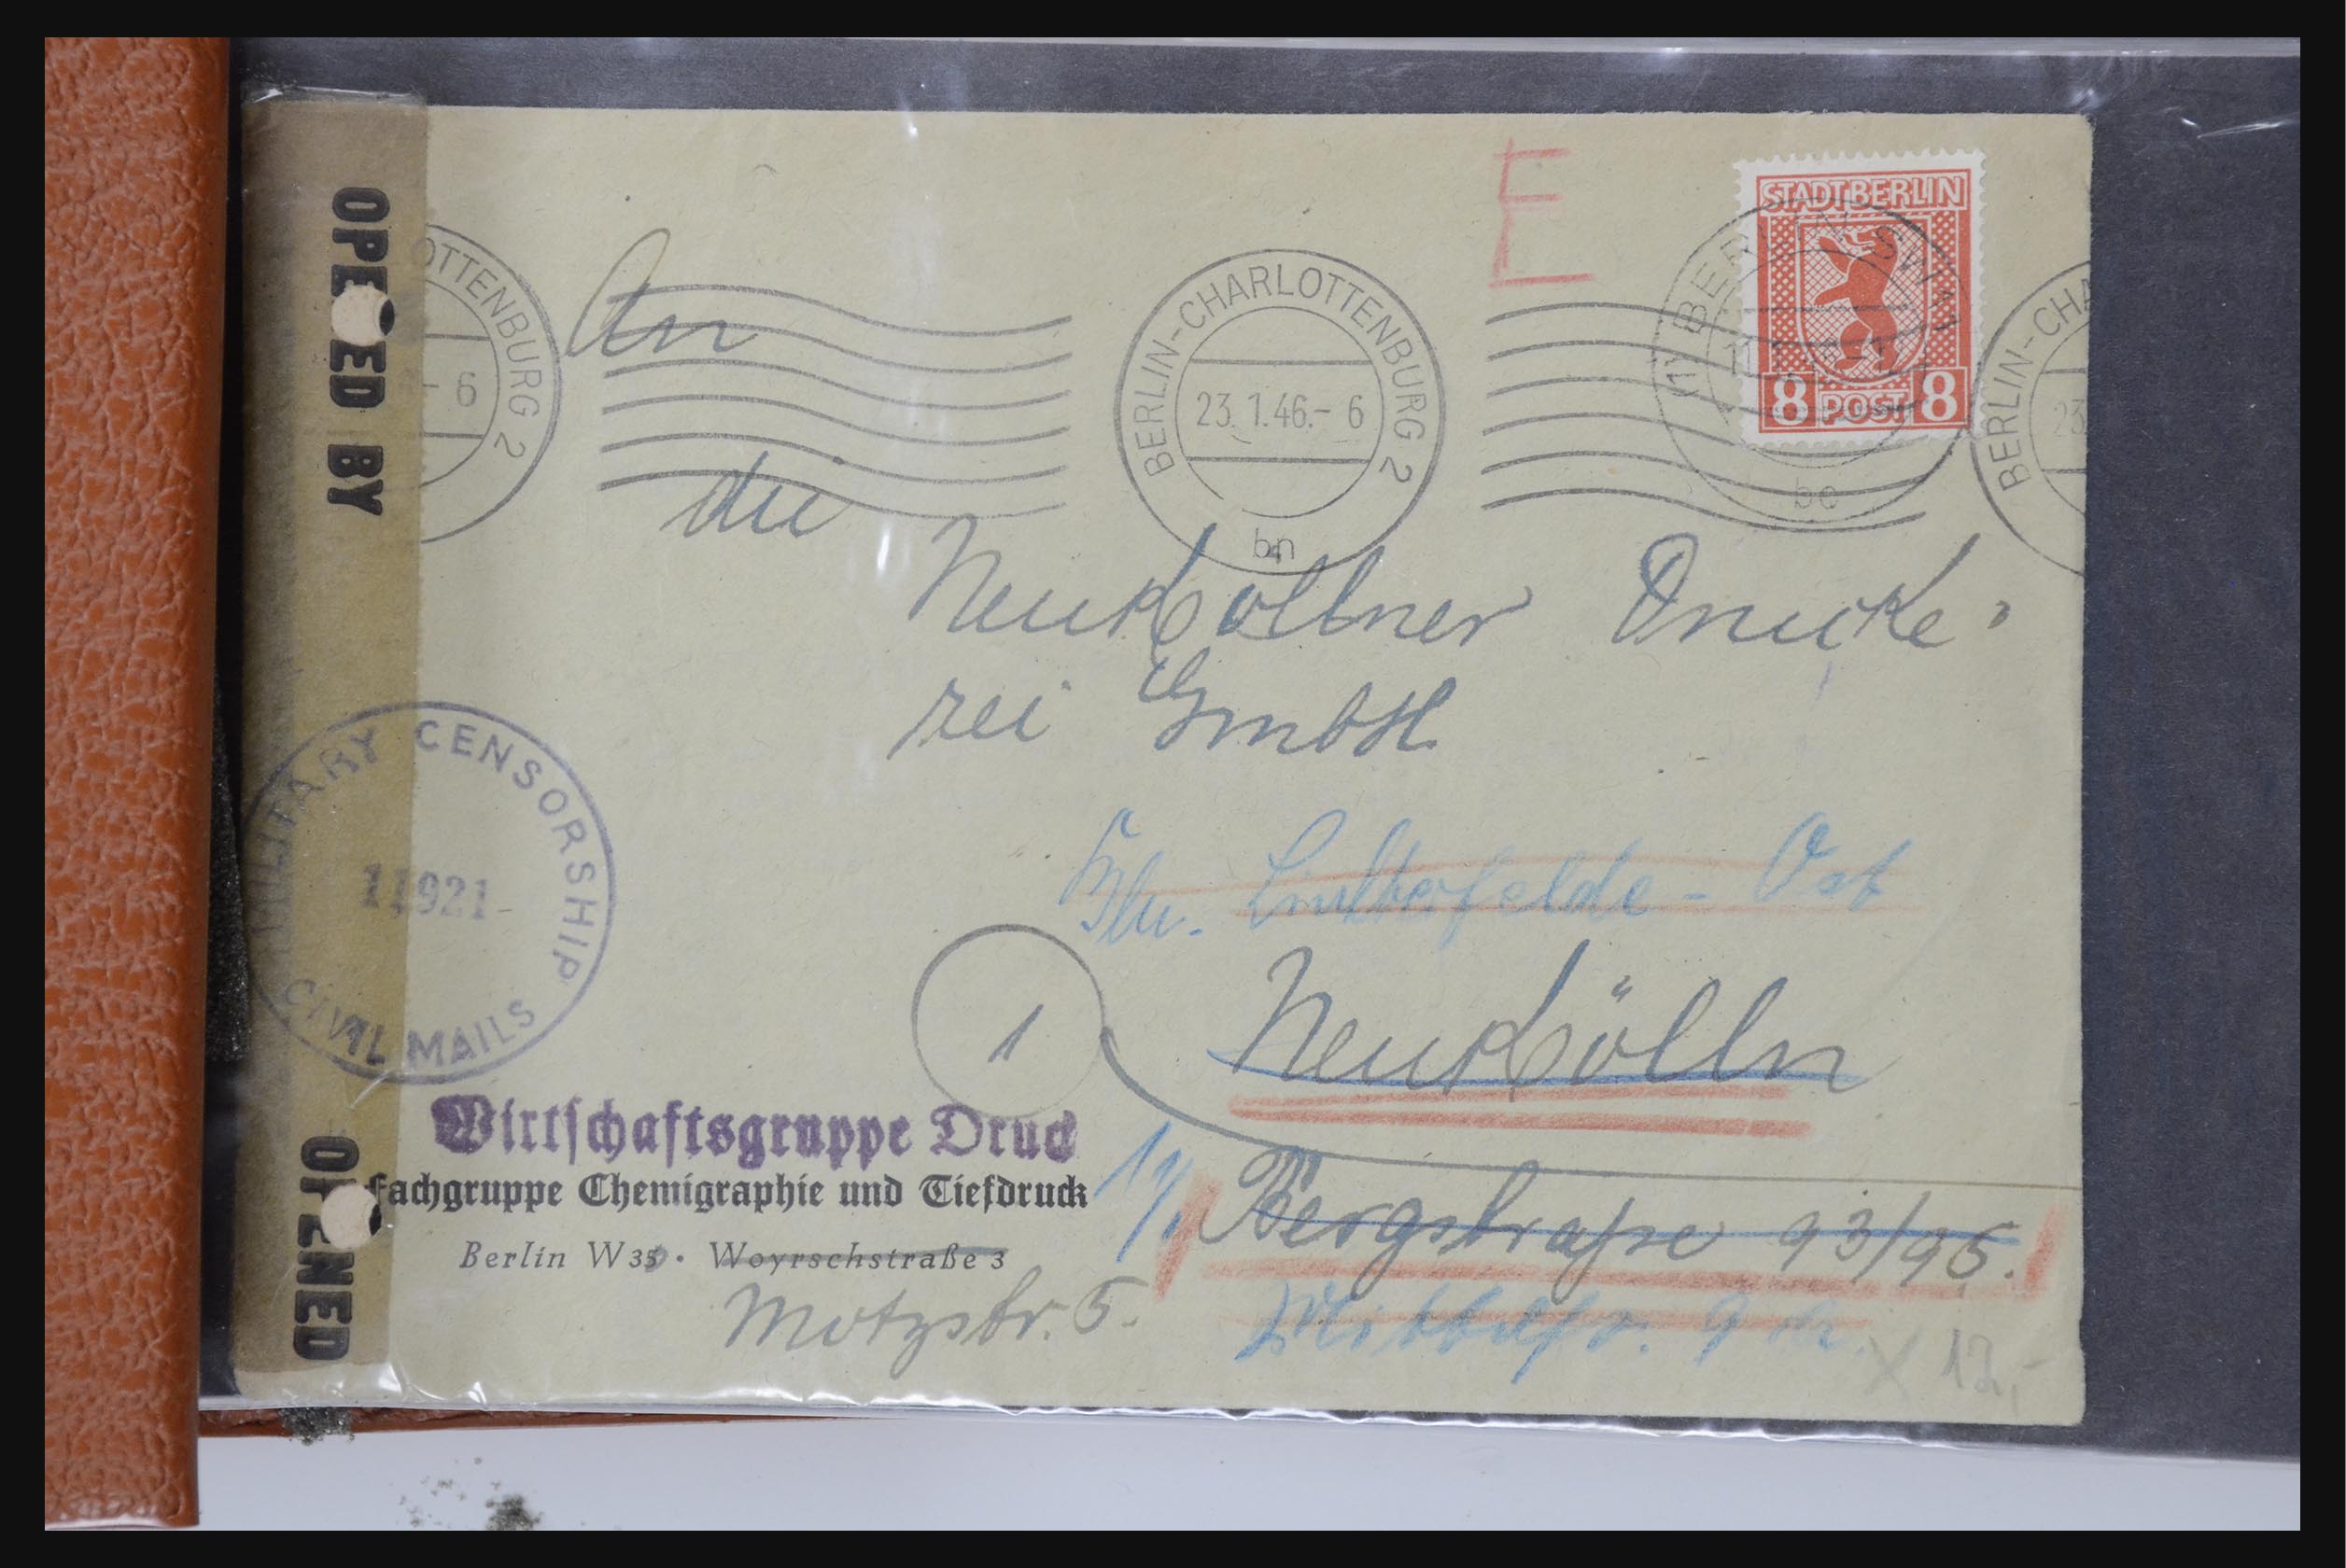 OPENED BY
OTTENBURG 2
- 6
An
BERLIN-CHARLOTTENBURG 2
23.1.46.- 6
bn
E
STADT BERLIN
8 POST 8
(1) BERLIN SW 11
bc
BERLIN-CHA
23
die
Neuköllner Drucke-
rei GmbH
MILITARY CENSORSHIP
11921
CIVIL MAILS
Bln. Lichterfelde - Ost
1
Neukölln
Wirtschaftsgruppe Druck
Fachgruppe Chemigraphie und Tiefdruck
Bergstraße 93/95.
Berlin W 35 · Woyrschstraße 3
Motzstr. 5.
OPENED
x 12,-